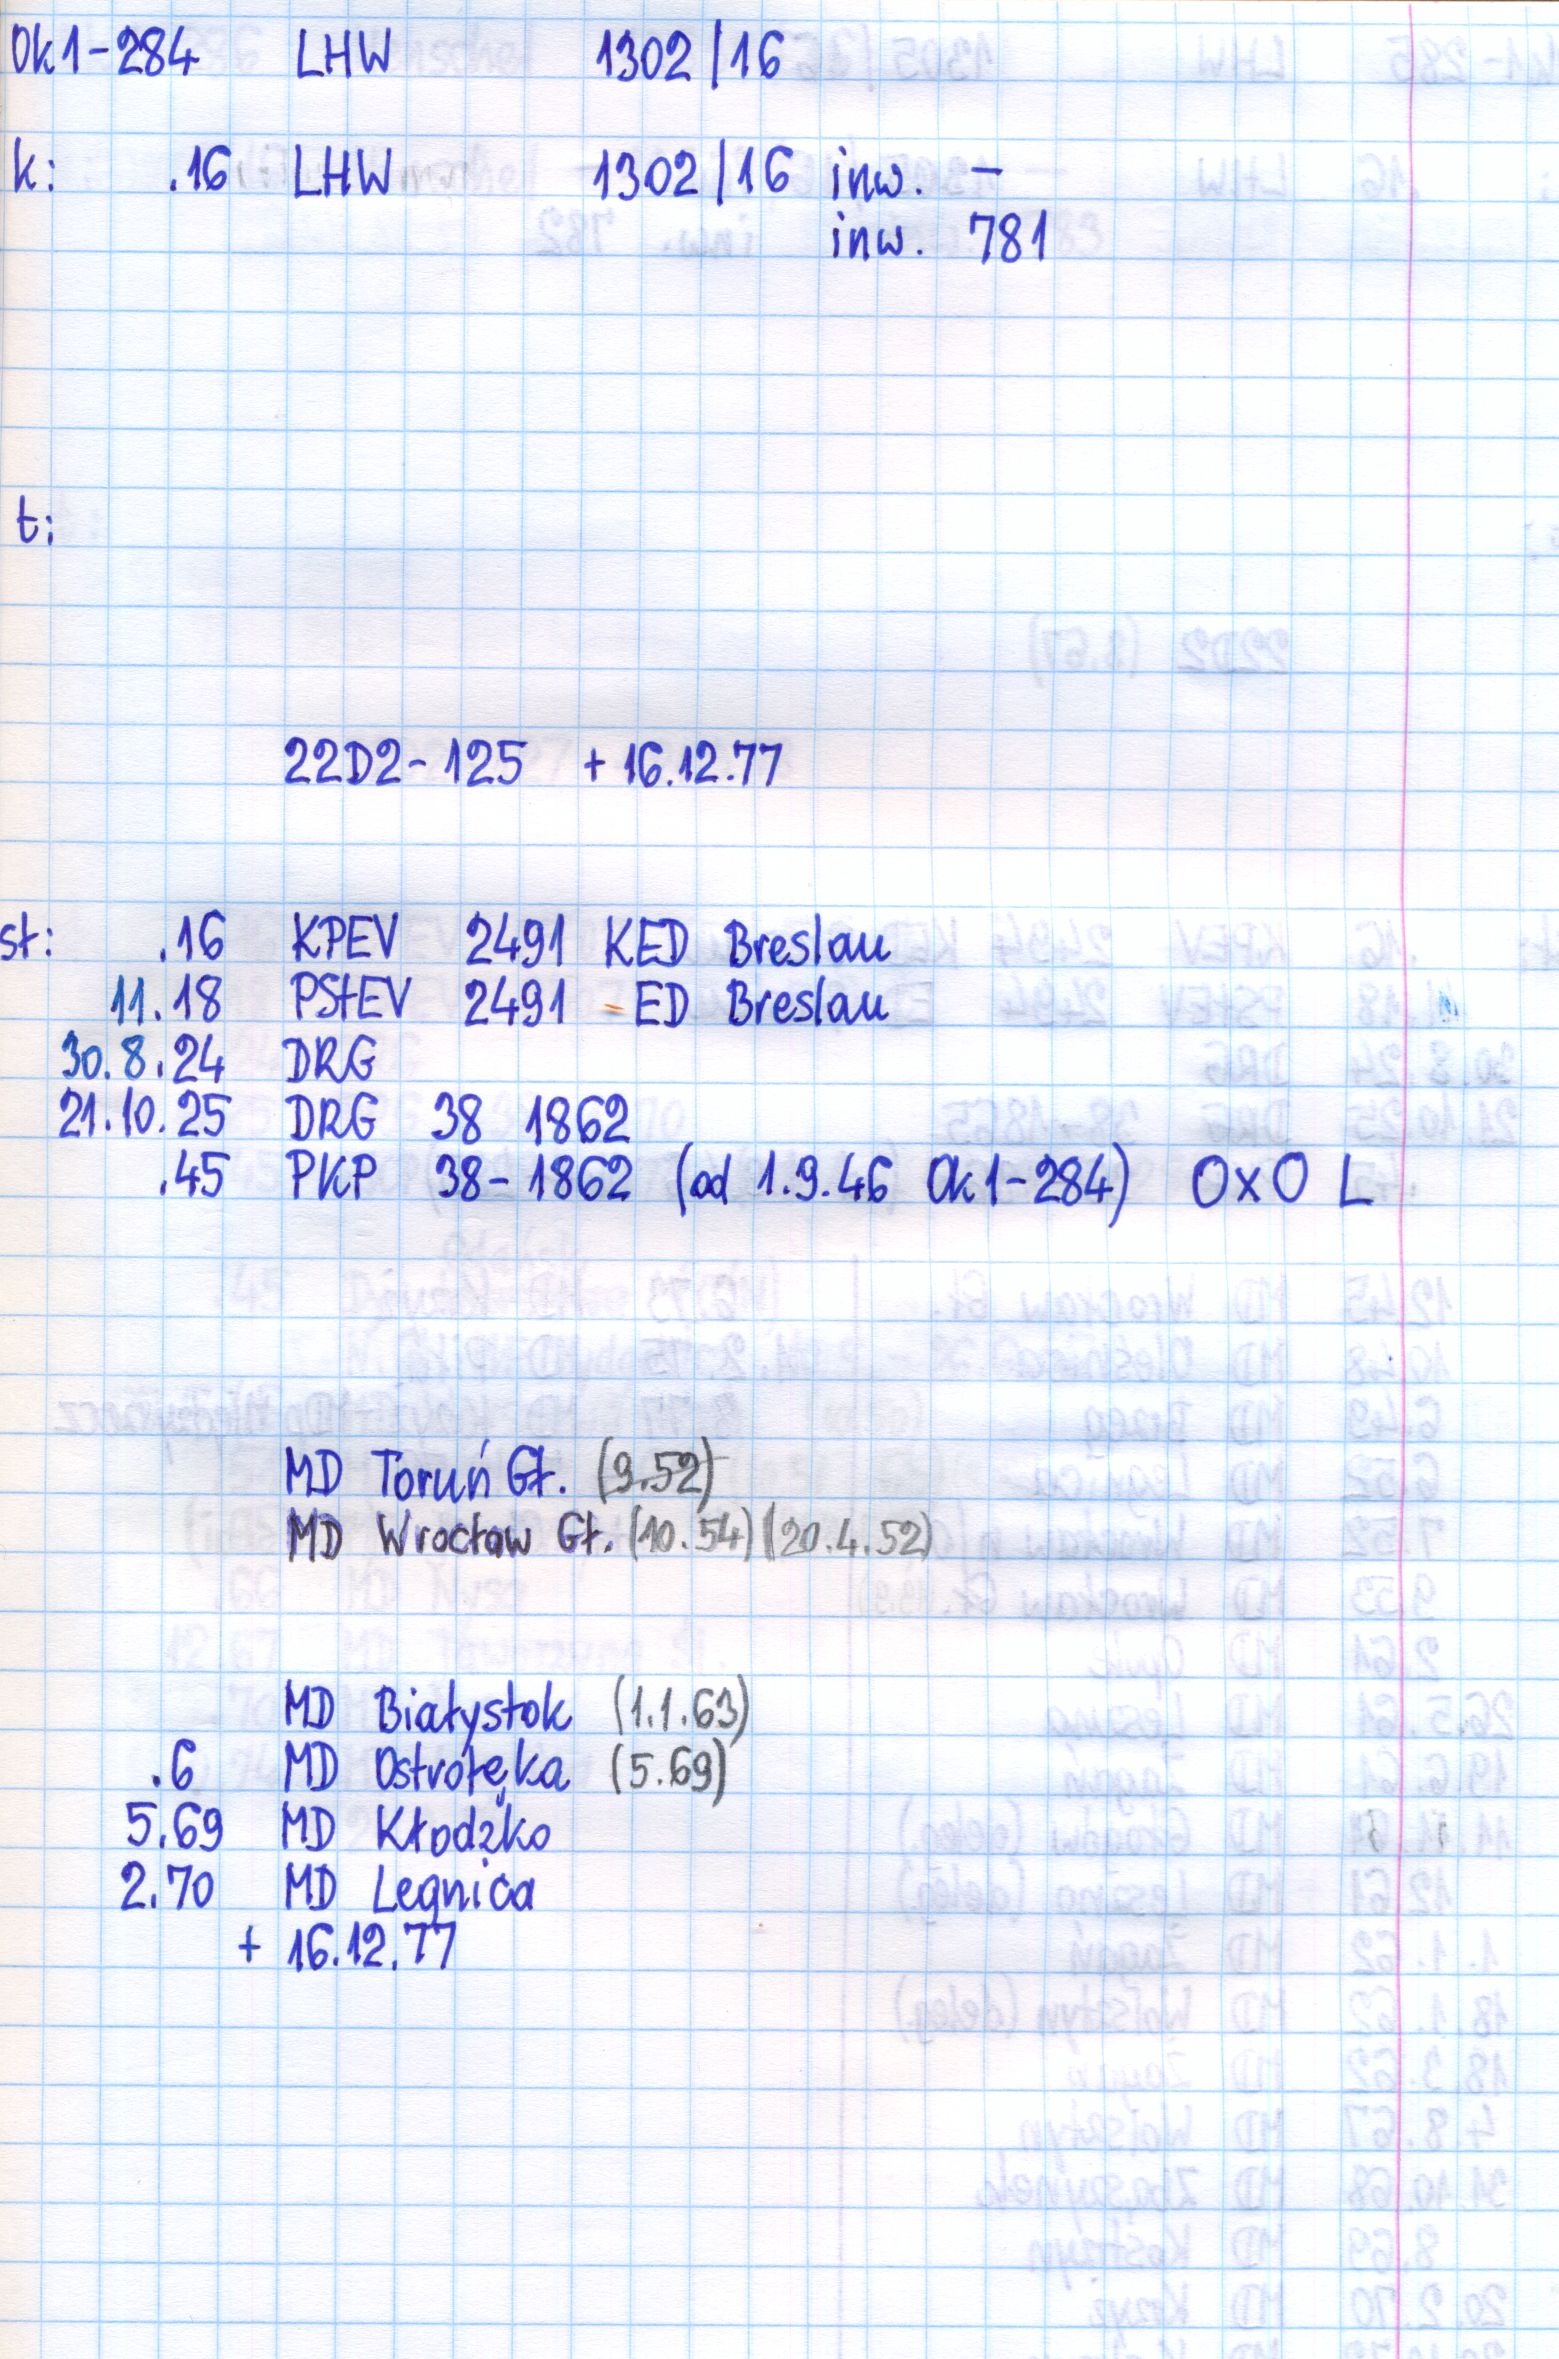 Ok1-284 LHW 1302/16
k: .16 LHW 1302/16 inw. -
inw. 781
t:
22D2-125 + 16.12.77
st: .16 KPEV 2491 KED Breslau
11.18 PStEV 2491 - ED Breslau
30.8.24 DRG
21.10.25 DRG 38 1862
.45 PKP 38-1862 (od 1.9.46 Ok1-284) OxO L
MD Toruń Gł. (9.52)
MD Wrocław Gł. (10.54) (20.4.52)
MD Białystok (1.1.63)
.6 MD Ostrołęka (5.69)
5.69 MD Kłodzko
2.70 MD Legnica
+ 16.12.77